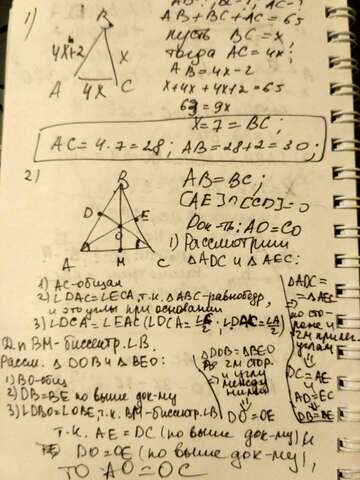 1)
B
4x+2
x
A
4x
C
AB+BC+AC=65
пусть BC=x
тогда AC=4x;
AB=4x-2
x+4x+4x+2=65
63=9x
x=7=BC;
AC=4·7=28; AB=28+2=30;
2)
B
D
E
O
A
M
C
AB=BC;
[AE]∩[CD]=O
Док-ть: AO=CO
1) Рассмотрим
△ADC и △AEC:
1) AC-общая
2) ∠DAC=∠ECA, т.к. △ABC-равнобедр,
и это углы при основании
3) ∠DCA=∠EAC (∠DCA=∠C/2; ∠DAC=∠A/2)
△ADC=
=△AEC
по сто-
роне и
2м прилеж
углам
⇓
DC=AE
и
AD=EC
⇓
DB=BE
Д.п BM-биссектр. ∠B.
Рассм. △DOB и △BEO:
1) BO-общ
2) DB=BE по выше док-му
3) ∠DBO=∠OBE, т.к. BM-биссектр. ∠B
△DOB=△BEO
по 2м стор.
и углу
между
ними
⇓
DO=OE
т.к. AE=DC (по выше док-му) и
DO=OE (по выше док-му),
ТО AO=OC